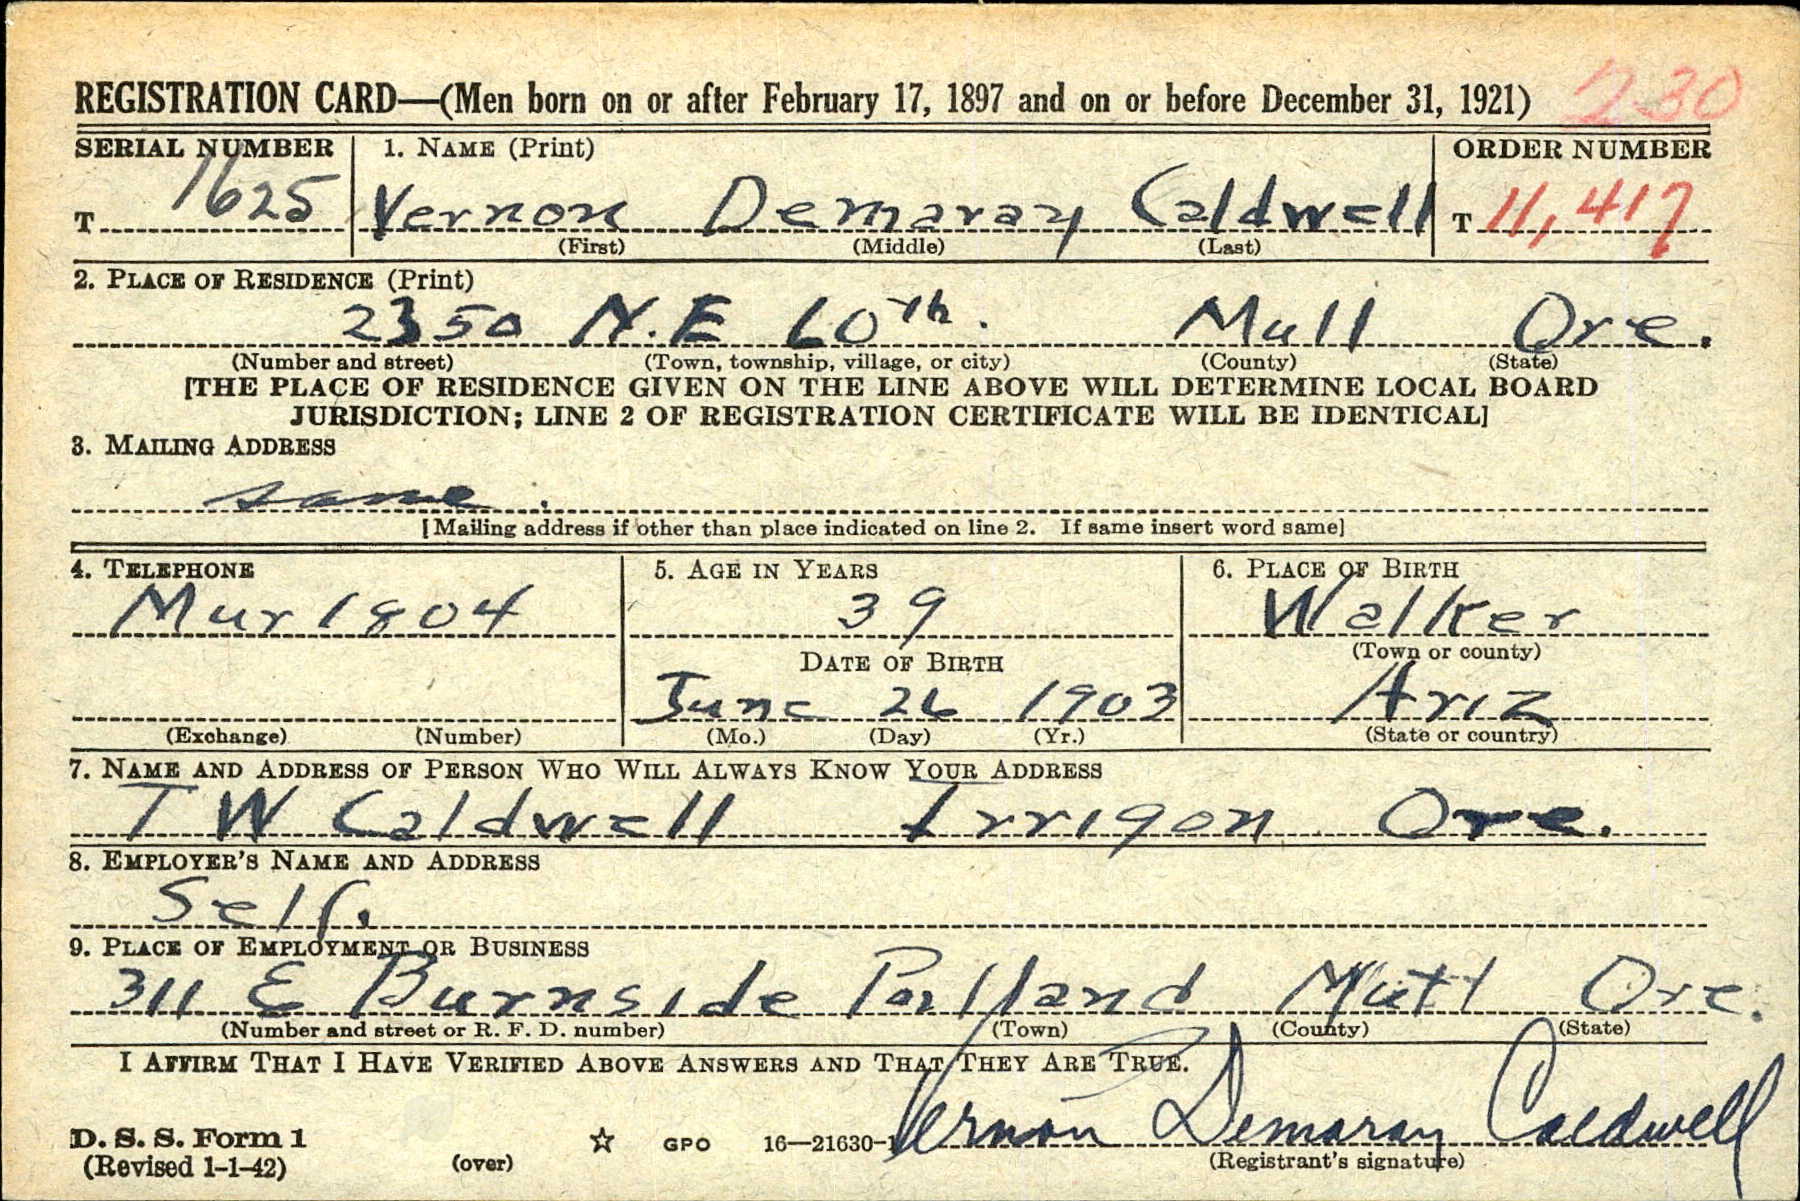 REGISTRATION CARD—(Men born on or after February 17, 1897 and on or before December 31, 1921) 230
SERIAL NUMBER 1. NAME (Print) ORDER NUMBER
T 1625 Vernon Demaray Caldwell T 11,417
(First) (Middle) (Last)
2. PLACE OF RESIDENCE (Print)
2350 N.E 60th. Mull Ore.
(Number and street) (Town, township, village, or city) (County) (State)
[THE PLACE OF RESIDENCE GIVEN ON THE LINE ABOVE WILL DETERMINE LOCAL BOARD
JURISDICTION; LINE 2 OF REGISTRATION CERTIFICATE WILL BE IDENTICAL]
3. MAILING ADDRESS
same.
[Mailing address if other than place indicated on line 2. If same insert word same]
4. TELEPHONE 5. AGE IN YEARS 6. PLACE OF BIRTH
Mur 1804 39 Walker
(Town or county)
DATE OF BIRTH
June 26 1903 Ariz
(Exchange) (Number) (Mo.) (Day) (Yr.) (State or country)
7. NAME AND ADDRESS OF PERSON WHO WILL ALWAYS KNOW YOUR ADDRESS
T W Caldwell Irrigon Ore.
8. EMPLOYER'S NAME AND ADDRESS
Self.
9. PLACE OF EMPLOYMENT OR BUSINESS
311 E Burnside Portland Mult Ore.
(Number and street or R. F. D. number) (Town) (County) (State)
I AFFIRM THAT I HAVE VERIFIED ABOVE ANSWERS AND THAT THEY ARE TRUE.
D. S. S. Form 1 Vernon Demaray Caldwell
(Revised 1-1-42) (over) GPO 16—21630-1 (Registrant's signature)